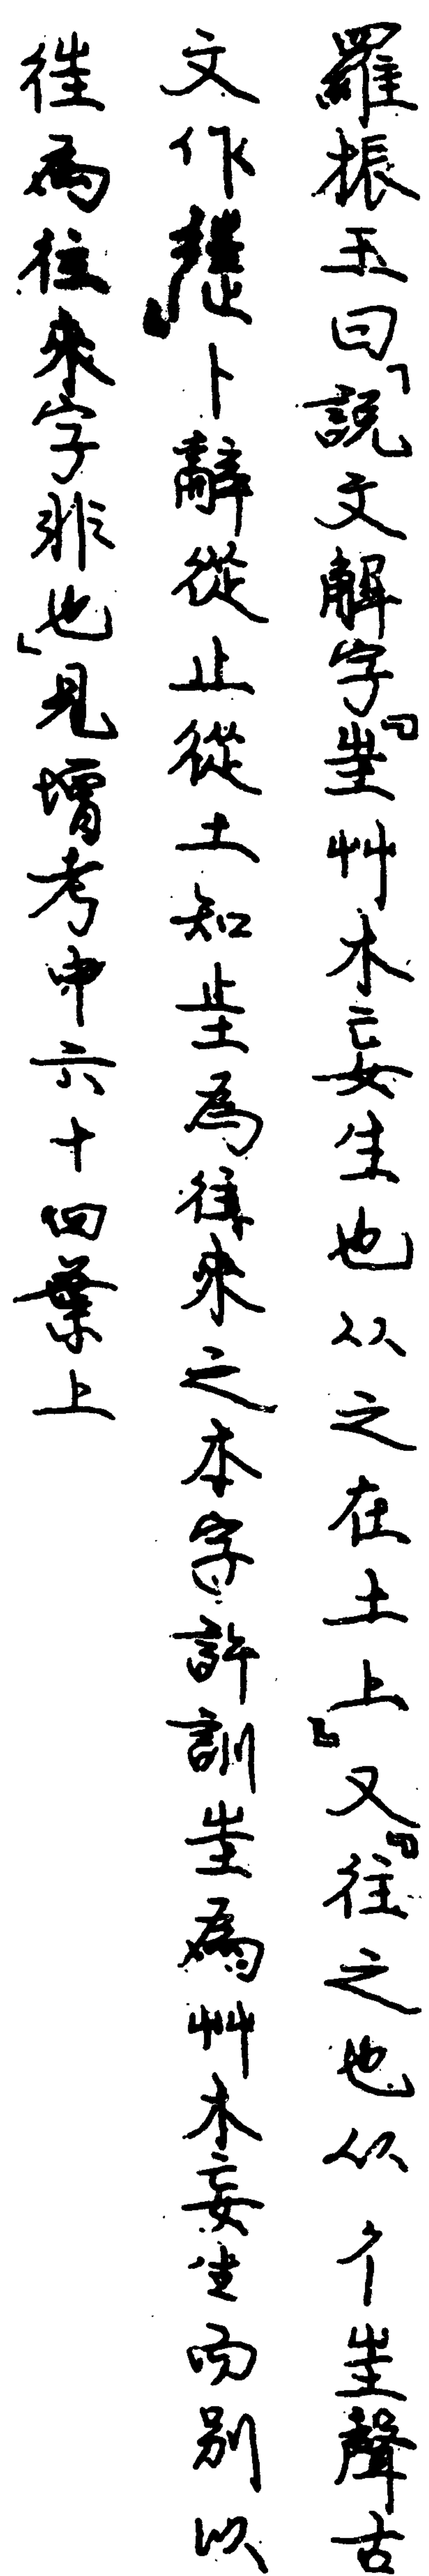 羅振玉曰「說文解字『㞷艸木妄生也从之在土上』又『往之也从彳㞷聲古
文作𨓹』卜辭從止從土知㞷為往來之本字許訓㞷為艸木妄生而別以
徃為往來字非也」見增考中六十四葉上